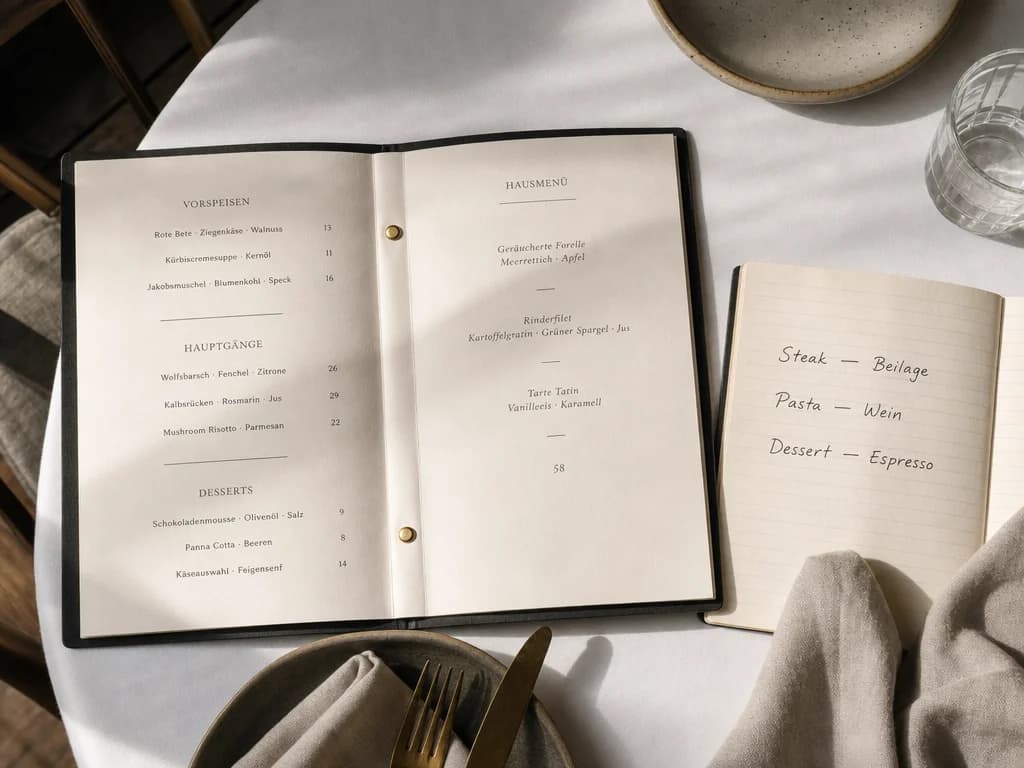 VORSPEISEN
Rote Bete · Ziegenkäse · Walnuss 13
Kürbiscremesuppe · Kernöl 11
Jakobsmuschel · Blumenkohl · Speck 16
HAUPTGÄNGE
Wolfsbarsch · Fenchel · Zitrone 26
Kalbsrücken · Rosmarin · Jus 29
Mushroom Risotto · Parmesan 22
DESSERTS
Schokoladenmousse · Olivenöl · Salz 9
Panna Cotta · Beeren 8
Käseauswahl · Feigensenf 14
HAUSMENÜ
Geräucherte Forelle
Meerrettich · Apfel
Rinderfilet
Kartoffelgratin · Grüner Spargel · Jus
Tarte Tatin
Vanilleeis · Karamell
58
Steak — Beilage
Pasta — Wein
Dessert — Espresso